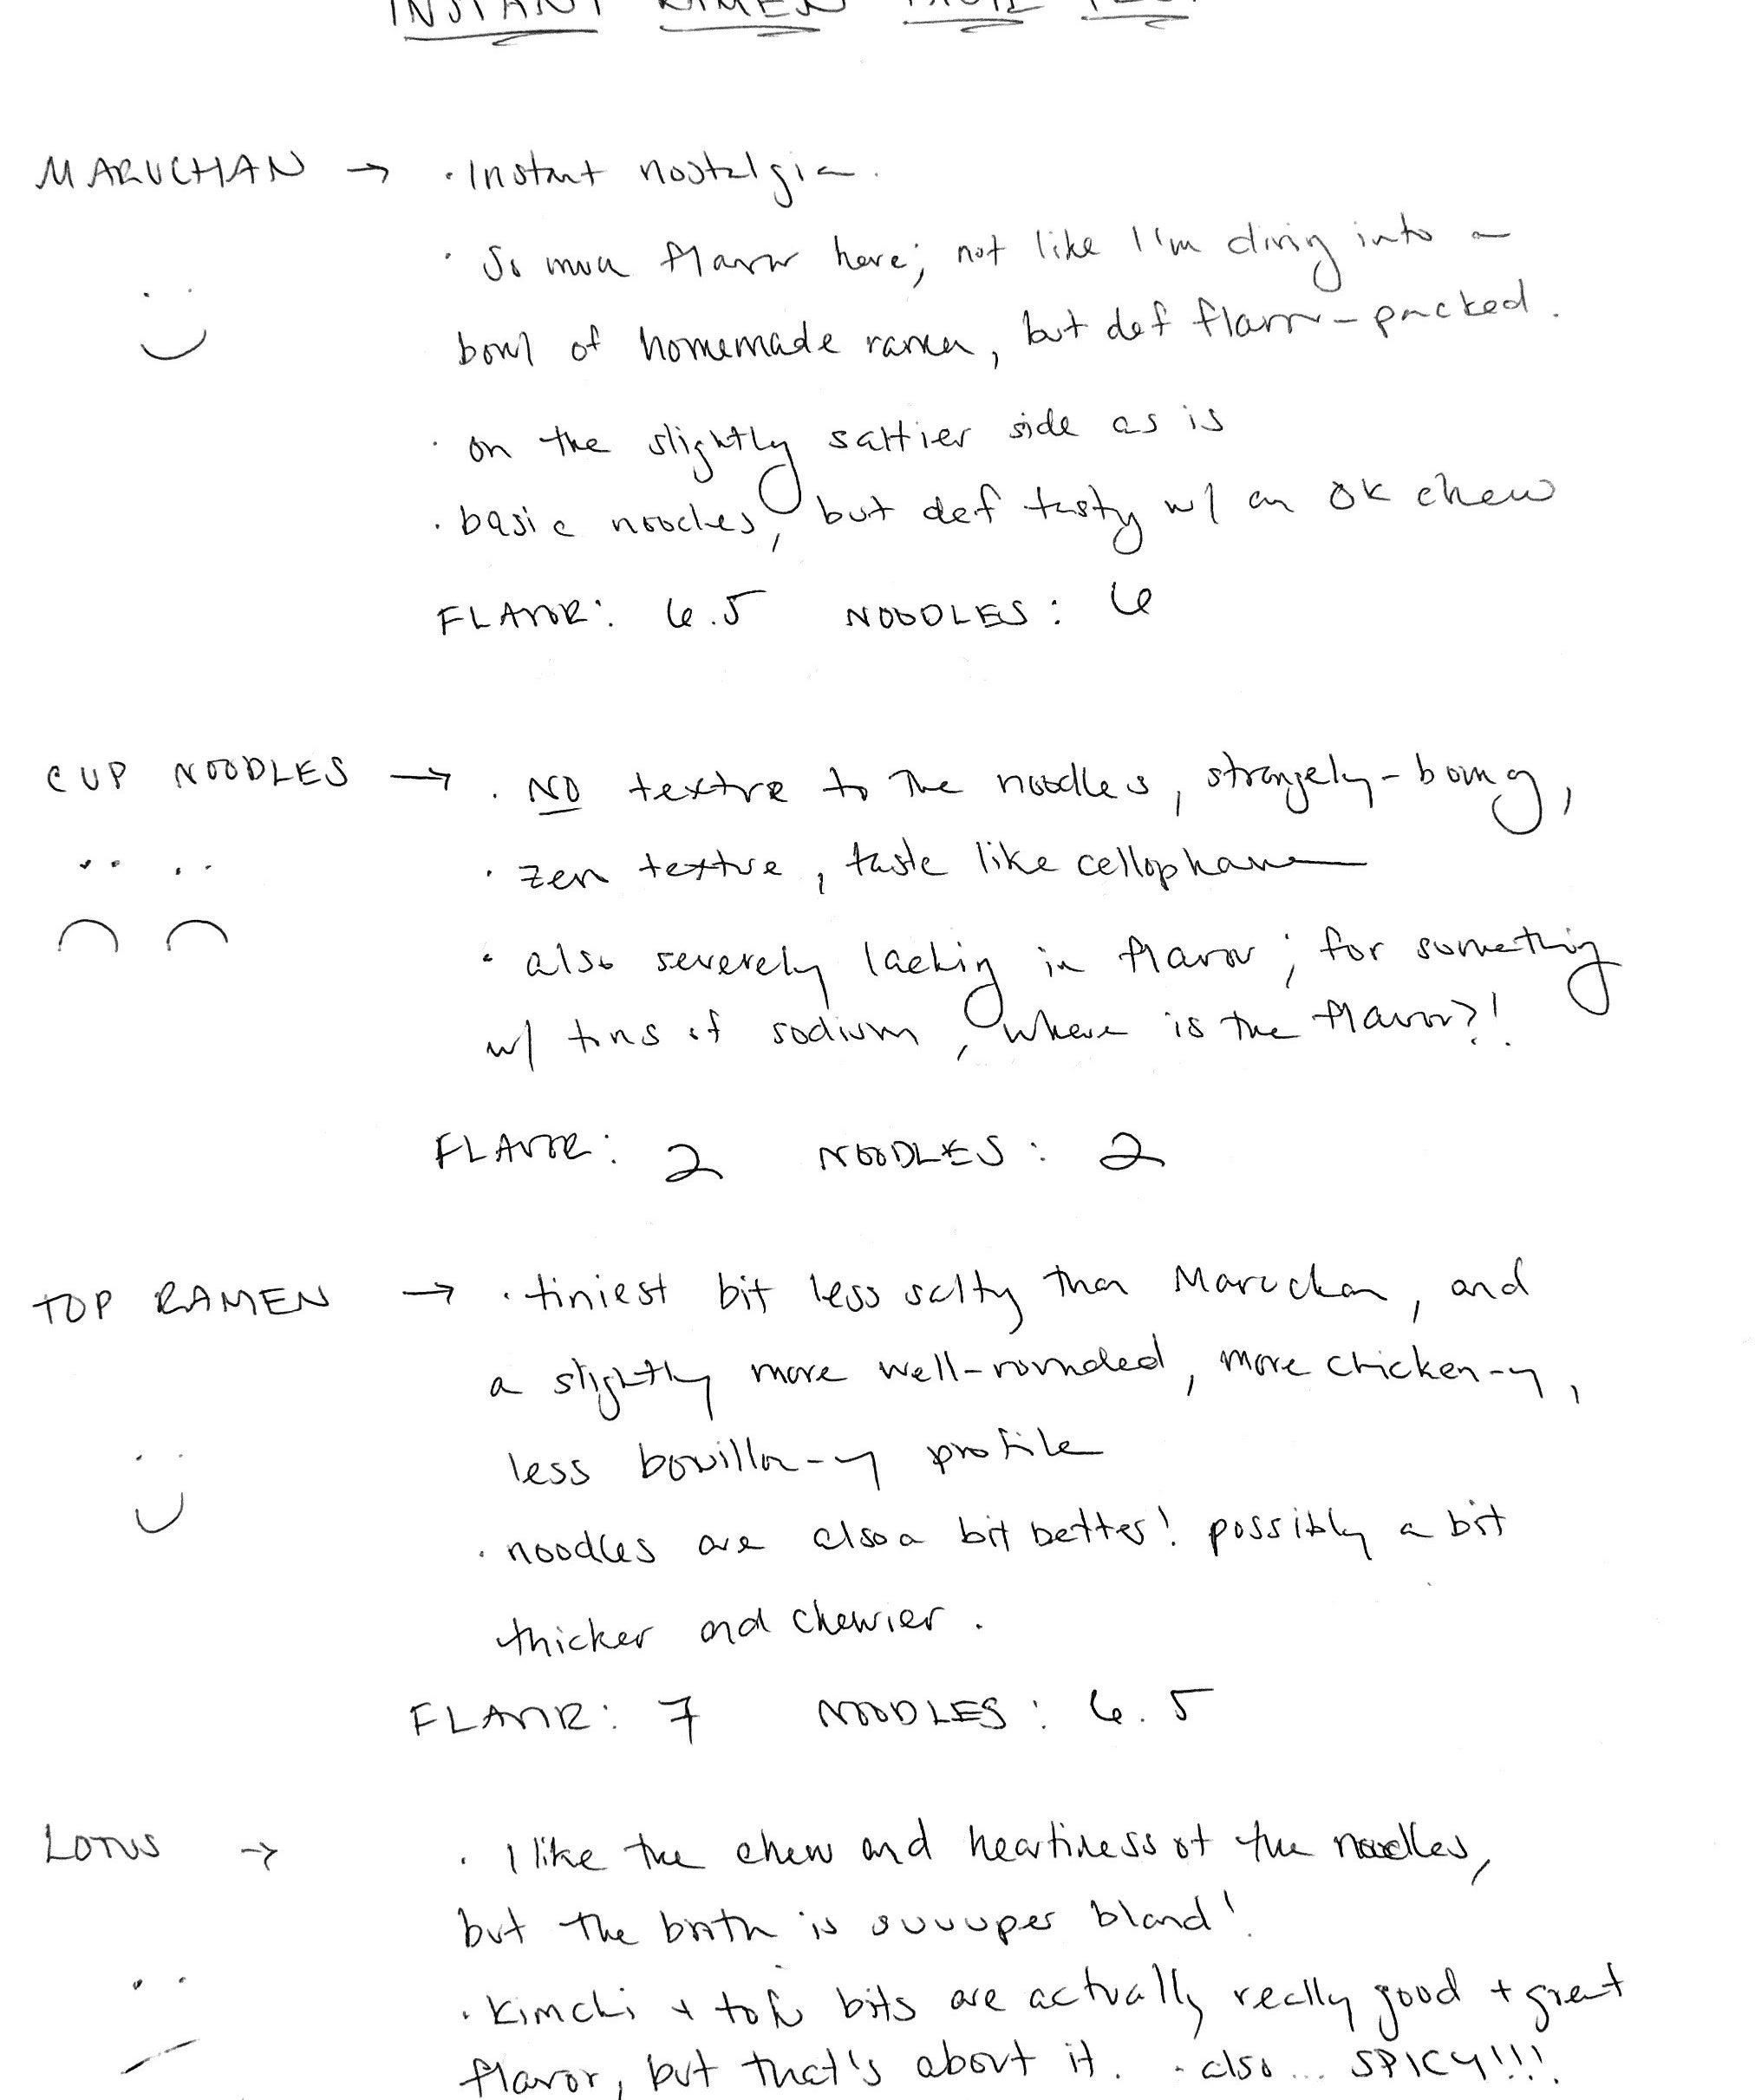 INSTANT RAMEN TASTE TEST
MARUCHAN → · Instant nostalgia.
· So much flavor here; not like I'm diving into a
bowl of homemade ramen, but def flavor-packed.
· on the slightly saltier side as is
· basic noodles, but def tasty w/ an OK chew
FLAVOR: 6.5 NOODLES: 6
CUP NOODLES → · NO texture to the noodles, strangely-boing,
· zero texture, taste like cellophane
· also severely lacking in flavor; for something
w/ tons of sodium, where is the flavor?!
FLAVOR: 2 NOODLES: 2
TOP RAMEN → · tiniest bit less salty than Maruchan, and
a slightly more well-rounded, more chicken-y,
less bouillon-y profile
· noodles are also a bit better! possibly a bit
thicker and chewier.
FLAVOR: 7 NOODLES: 6.5
LOTUS → · I like the chew and heartiness of the noodles,
but the broth is suuuper bland!
· Kimchi + tofu bits are actually really good + great
flavor, but that's about it. · also... SPICY!!!